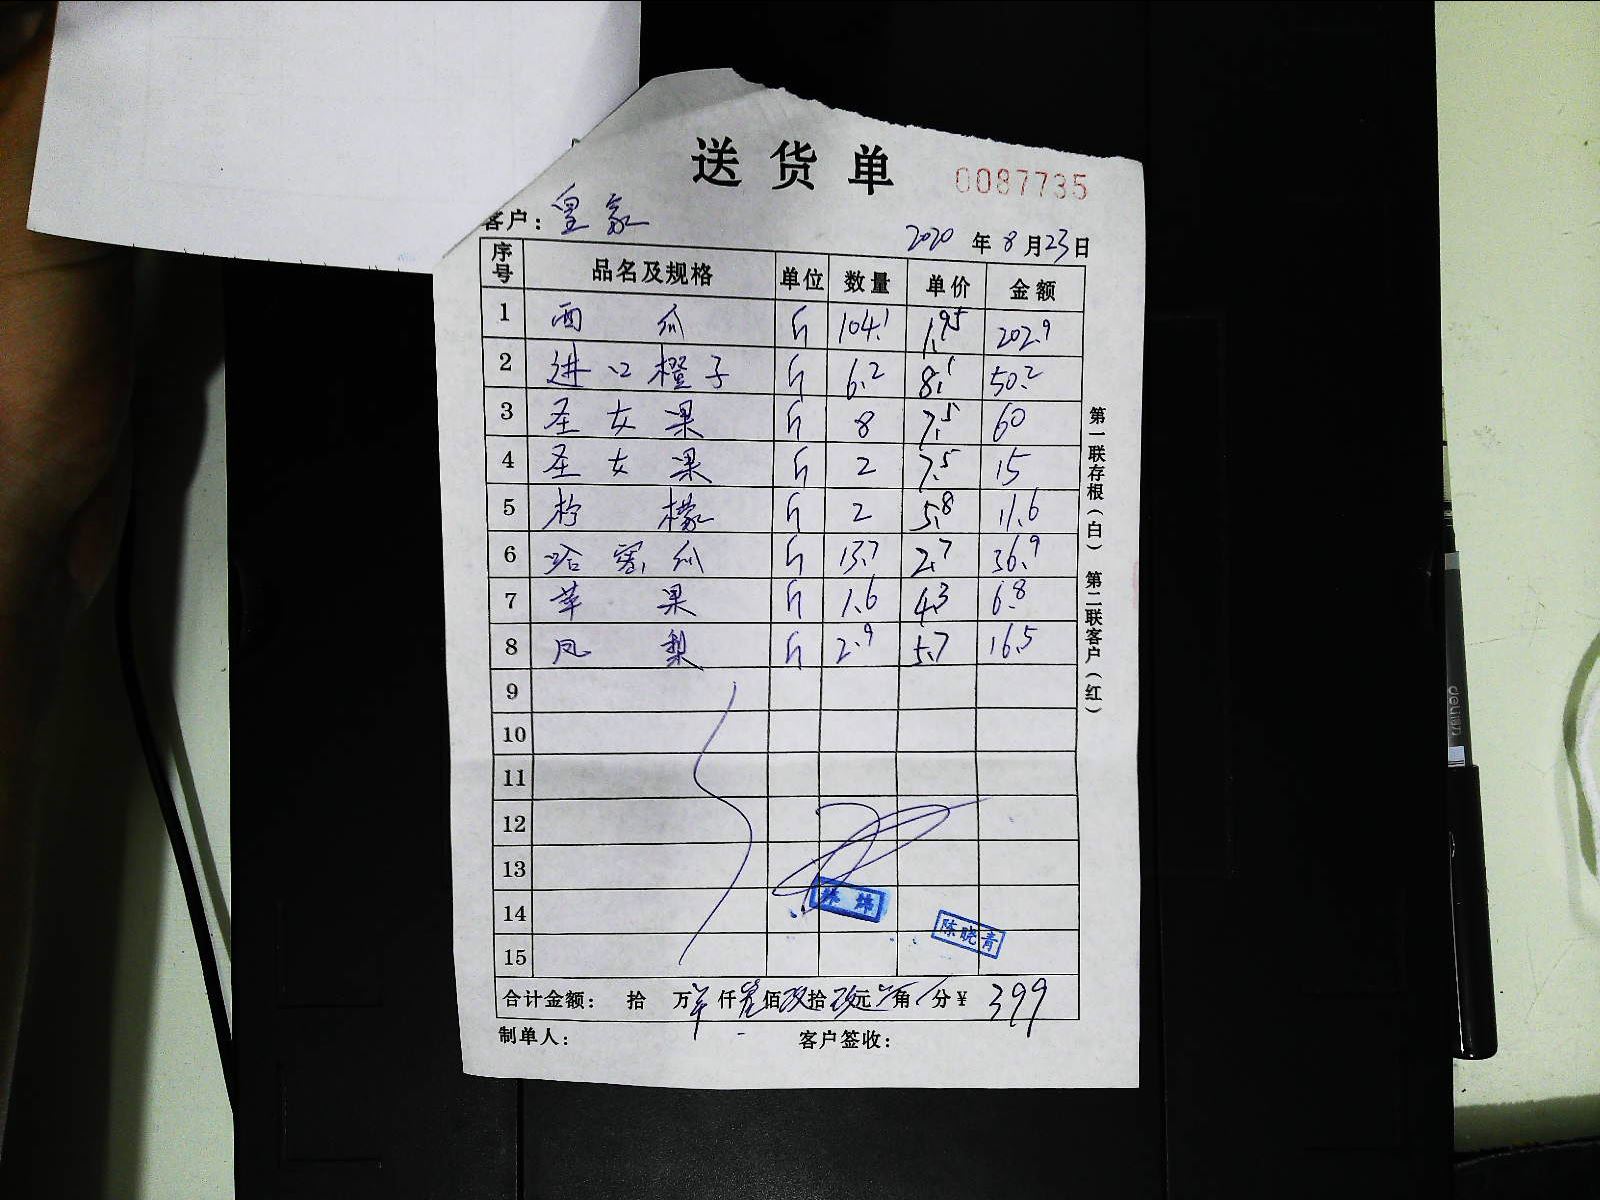 送货单 0087735
客户：皇家
2020年8月23日
序号 品名及规格 单位 数量 单价 金额
1 西瓜 斤 104.1 1.95 202.9
2 进口橙子 斤 6.2 8.1 50.2
3 圣女果 斤 8 7.5 60
4 圣女果 斤 2 7.5 15
5 柠檬 斤 2 5.8 11.6
6 哈密瓜 斤 13.7 2.7 36.9
7 苹果 斤 1.6 4.3 6.8
8 凤梨 斤 2.9 5.7 16.5
9
10
11
12
13
14
15
陈晓青
合计金额： 拾 万 仟叁佰玖拾玖元 角 分￥ 399
制单人： 客户签收：
第一联存根（白） 第二联客户（红）
deli